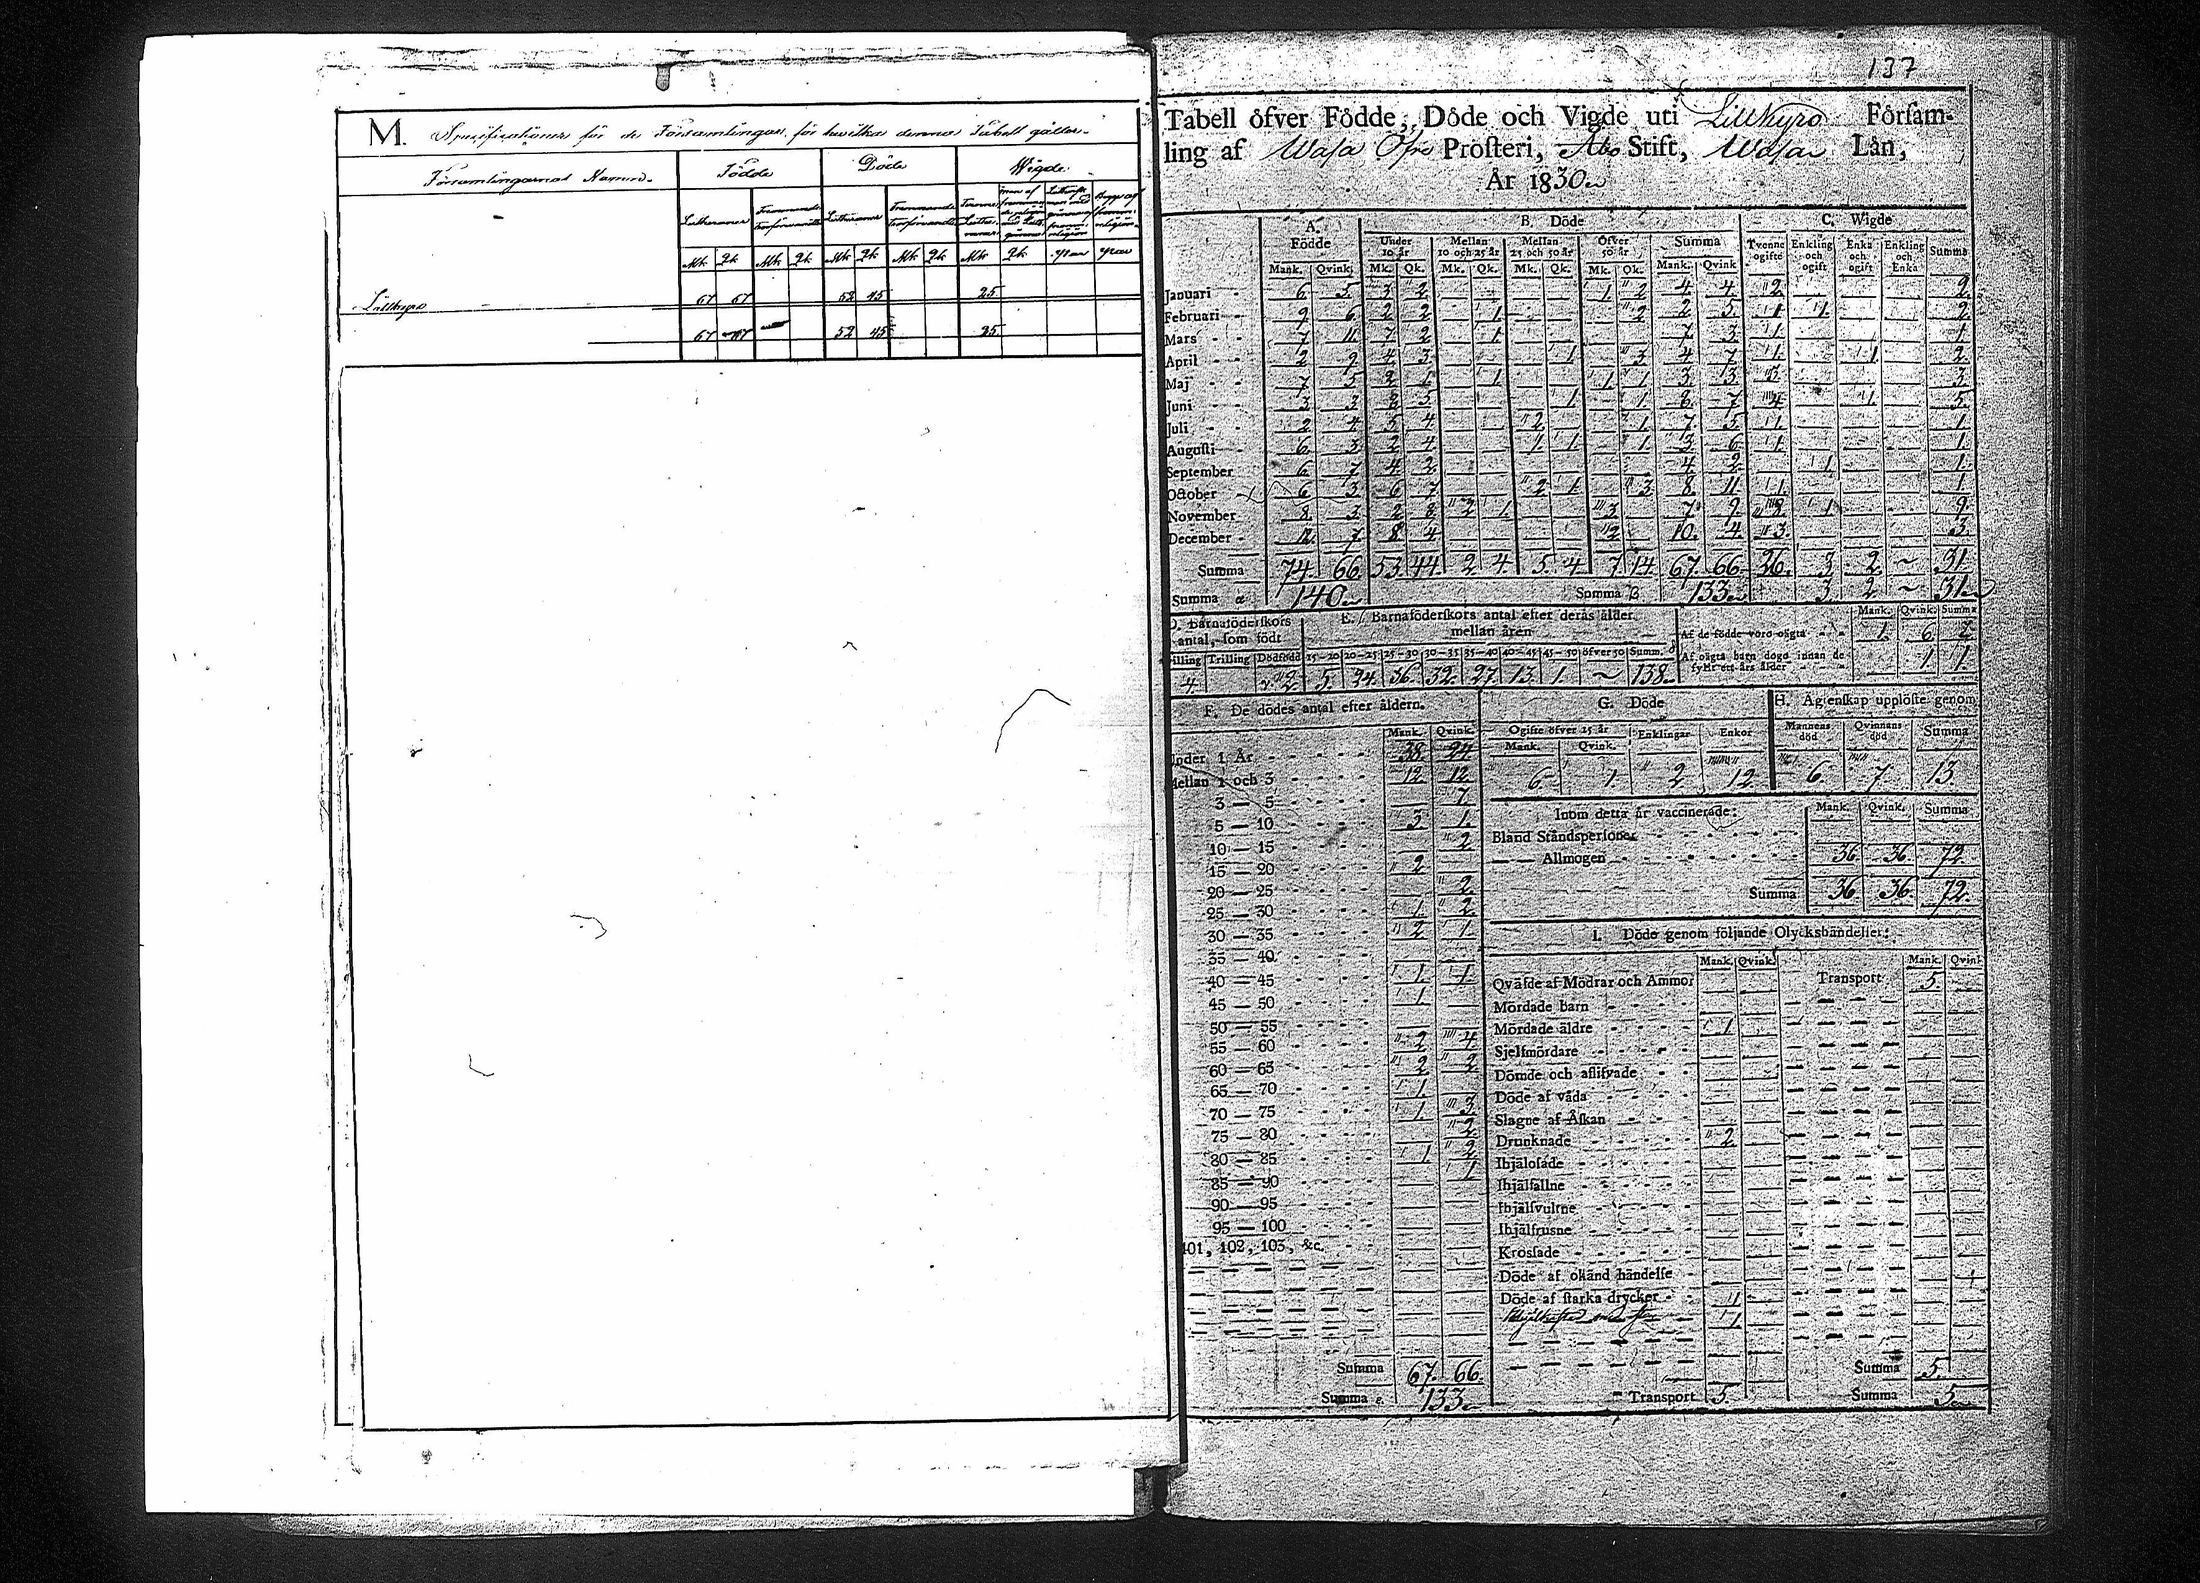 M. Specifikationer för de Församlingar, för hvilka denna Tabell gäller.
Församlingarnas Namn. Födde Döde Wigde
Lutheraner Främmande Trosförvandter Lutheraner Främmande Trosförvandter
Mk Qk Mk Qk Mk Qk Mk Qk Mk Qk
Lillkyro 67 67 52 45 25
67 67 52 45 25
137
Tabell öfver Födde, Döde och Vigde uti Lillkyro Förſam-
ling af Wasa Öfre Proſteri, Åbo Stift, Wasa Län,
År 1830
A. Födde B. Döde C. Wigde
Under 10 år Mellan 10 och 25 år Mellan 25 och 50 år Öfver 50 år Summa Tvenne ogifte Enkling och ogift Enka och ogift Enkling och Enka Summa
Mank. Qvink. Mk. Qk. Mk. Qk. Mk. Qk. Mk. Qk. Mank. Qvink
Januari 6 5 3 2 1 2 4 4 2 2
Februari 9 6 2 2 1 2 2 5 1 1 2
Mars 7 11 7 2 1 7 3 1 1
April 2 9 4 3 1 3 4 7 1 1 2
Maj 7 5 2 1 1 1 1 3 3 3 3
Juni 3 3 8 5 1 1 8 7 4 1 5
Juli 2 4 5 4 2 1 7 5 1 1
Auguſti 6 3 2 4 1 1 1 3 6 1 1
September 6 7 4 2 4 2 1 1
October 6 3 6 7 2 1 3 8 11 1 1
November 8 3 2 8 2 1 3 7 9 8 1 9
December 12 7 8 4 2 10 4 3 3
Summa 74 66 53 44 2 4 5 4 7 14 67 66 26 3 2 31
Summa α 140 Summa β 133 3 2 31
D. Barnaföderſkors antal, ſom födt E. Barnaföderſkors antal efter deras ålder mellan åren Mank. Qvink. Summa
Af de födde voro oägta 1 6 7
Tvilling Trilling Dödfödd 15-20 20-25 25-30 30-35 35-40 40-45 45-50 öfver 50 Summ. δ
Af oägta barn dogo innan de fyllt ett års ålder 1 1
4 2 5 24 36 32 27 13 1 138
F. De dödes antal efter åldern. G. Döde H. Ägtenſkap upplöſte genom
Mank. Qvink. Ogifte öfver 15 år Enklingar Enkor Mannens död Qvinnans död Summa
Mank. Qvink.
Under 1 År 38 24
6 1 2 12 6 7 13
Mellan 1 och 3 12 12
3 — 5 7
5 — 10 3 1
10 — 15 2
15 — 20 2
20 — 25 2
25 — 30 1 2
30 — 35 2 1
35 — 40
40 — 45 1 1
45 — 50 1
50 — 55
55 — 60 2 4
60 — 65 2 2
65 — 70 1
70 — 75 1 3
75 — 80 2
80 — 85 1 2
85 — 90 1
90 — 95
95 — 100
101, 102, 103, &c.
Summa 67 66
Summa ε. 133
Inom detta år vaccinerade: Mank. Qvink. Summa
Bland Ståndsperſoner
— — Allmogen 36 36 72
Summa 36 36 72
I. Döde genom följande Olyckshändelſer:
Mank. Qvink. Mank. Qvink
Qväfde af Mödrar och Ammor Transport 5
Mördade barn
Mördade äldre 1
Sjelfmördare
Dömde och aflifvade
Döde af våda
Slagne af Åſkan
Drunknade 2
Ihjälofade
Ihjälfallne
Ihjälſvultne
Ihjälfruſne
Kroſſade
Döde af okänd händelſe
Döde af ſtarka drycker 1
1
Summa 5
Transport 5 Summa 5